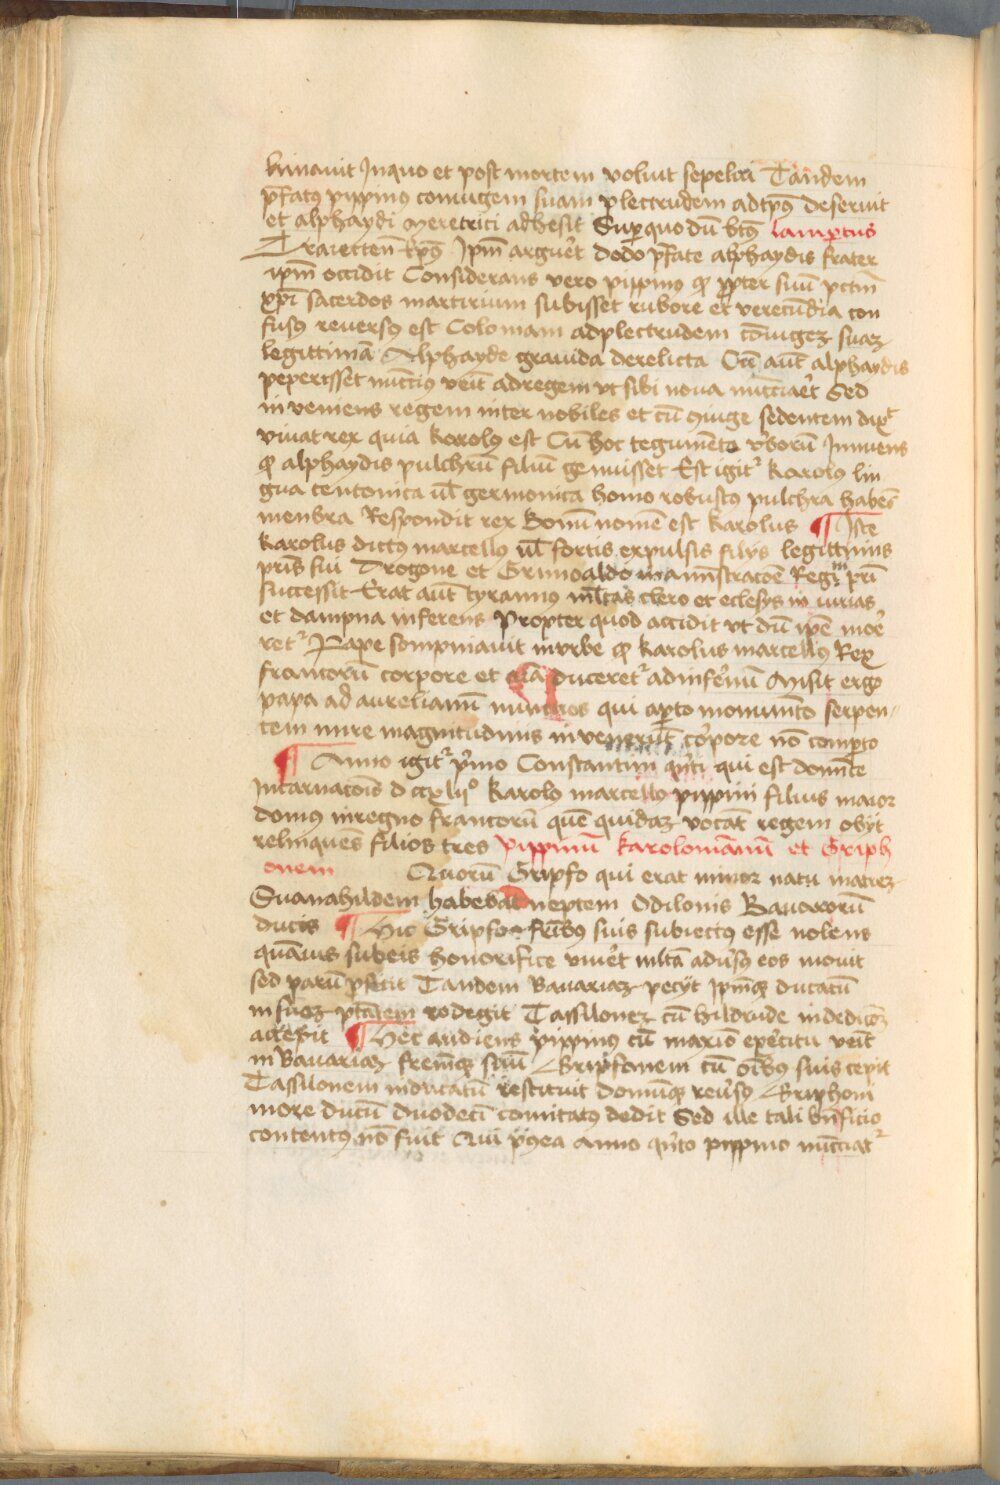 bimavit In quo et post mortem voluit sepeliri Tandem
p̄fatus pippinus coniugem suam plectrudem ad tp̄us deseruit
et alphaydi meretrici adhesit Super quo dū bt̄us lamp̄tus
Traiecten̄ ep̄us Ip̄m arguēt dodo p̄fate alphaydis frater
ip̄m occidit Considerans vero pippinus qp̄ ꝓpter suū pctm̄
xp̄i sacerdos martirium subisset rubore et verecūdia con
fusus reuersus est Coloniam ad plectrudem cōiugez suaz
legittimā Alphayde grauida derelicta Cū aut̄ alphaydis
peperisset nunctius veīt ad regem vt sibi noua nūcciaēt Sed
in veniens regem inter nobiles et cū ꝯiuge sedentem dixͭ
viuat rex quia karolus est Cū hoc tegumēto v̄borū Innuens
qp̄ alphaydis pulchrū filiū genuisset Est igit᷑ karolus lin
gua teutonica ul̄ germonica homo robustus pulchra habēs
menbra Respondit rex Bonū nomē est karolus ¶ Iste
karolus dictus marcellus ul̄ fortis expulsis filijs legittimis
pr̄is sui Drogone et Grimoaldo in amīstracōe Regīm pr̄i
successit Erat aut̄ tyrannus ml̄tas clero et eclesijs in iurias
et dampna inferens Propter quod accidit vt dū ip̄e moē
ret᷑ Pape sompniauit in vrbe qp̄ karolus marcellus Rex
francorū corpore et aīa duceret᷑ ad infēnū Misit ergo
papa ad aurelianū nunctios qui ap̄to monum̄to serpen
tem mire magnitudinis in venerūt cōpore nō comp̄to
¶ Anno igit᷑ p̄mo Constantini qn̄ti qui est domīce
Incarnacōis d cc xlijº karolus marcellus pippini filius maior
domus in regno francorū quē quidaz vocāt regem obijt
relinquēs filios tres pippinū karolomānū et Griph
onem Quorū Gripfo qui erat minor natu matrez
Suanahildem habebat neptem Odilonis Bauarorū
ducis ¶ Hic Gripfo fr̄ibus suis subiectus esse nolens
quāuis sub eis honorifice viuēt ml̄ta adūsus eos mouit
sed parū ꝓfecit Tandem Bauariaz pecijt Ip̄mqȝ ducatū
in suaz ptātem redegit Tassilonez cū hildrude in dedicōz
accepit ¶ Hec audiens pippinus cū maxīo exēcitu veīt
in Bauariaz frem̄qȝ suū Gripfonem cū oībus suis cepit
Tassilonem in ducatū restituit Domūqȝ reūsus Griphoni
more ducū duodecī comitatus dedit Sed ille tali bn̄ficio
contentus nō fuit Qui p̄ꝯea anno qn̄to pippino nūcciat᷑